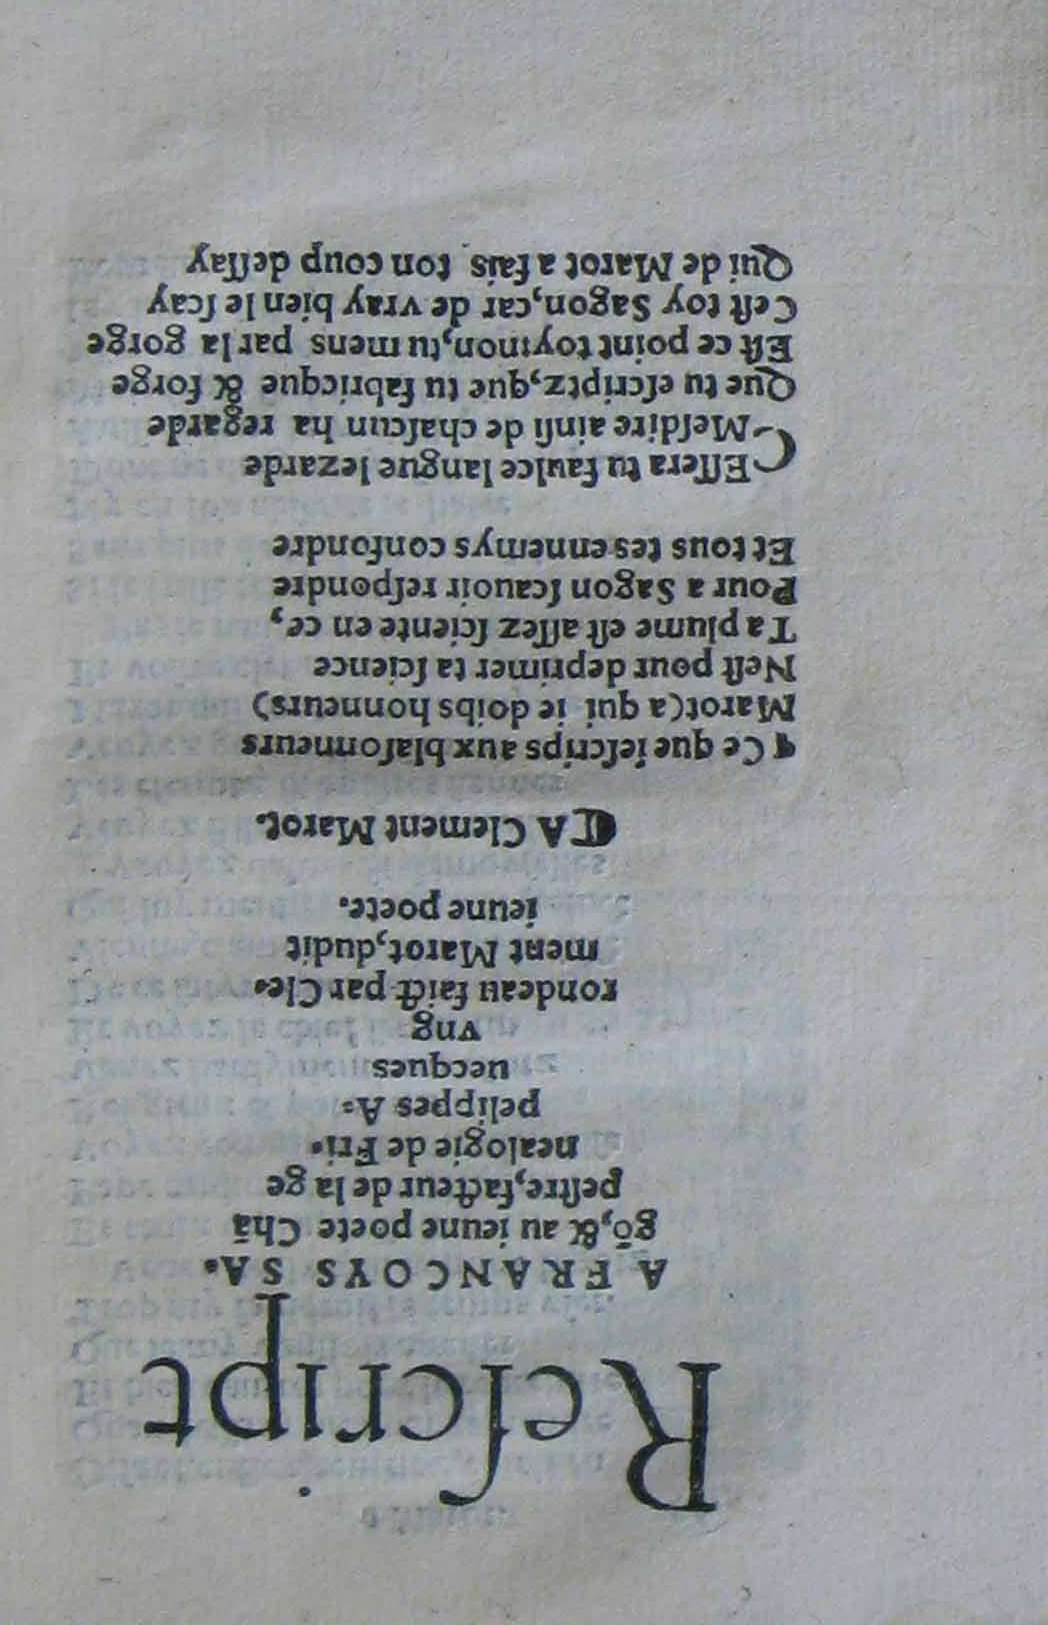 Reſcript
A FRANCOYS SA-
gō,& au ieune poete Chā
peſtre,facteur de la ge
nealogie de Fri-
pelippes A-
uecques
vng
rondeau faict par Cle-
ment Marot,dudit
ieune poete.
⸿A Clement Marot.
¶Ce que ieſcrips aux blaſonneurs
Marot(a qui ie doibs honneurs)
Neſt pour deprimer ta ſcience
Ta plume eſt aſſez ſciente en ce,
Pour a Sagon ſcauoir reſpondre
Et tous tes ennemys confondre
CEſſera tu faulce langue lezarde
Meſdire ainſi de chaſcun ha regarde
Que tu eſcriptz,que tu fabricque & forge
Eſt ce point toy:non,tu mens par la gorge
Ceſt toy Sagon,car de vray bien le ſcay
Qui de Marot a fais ton coup deſſay